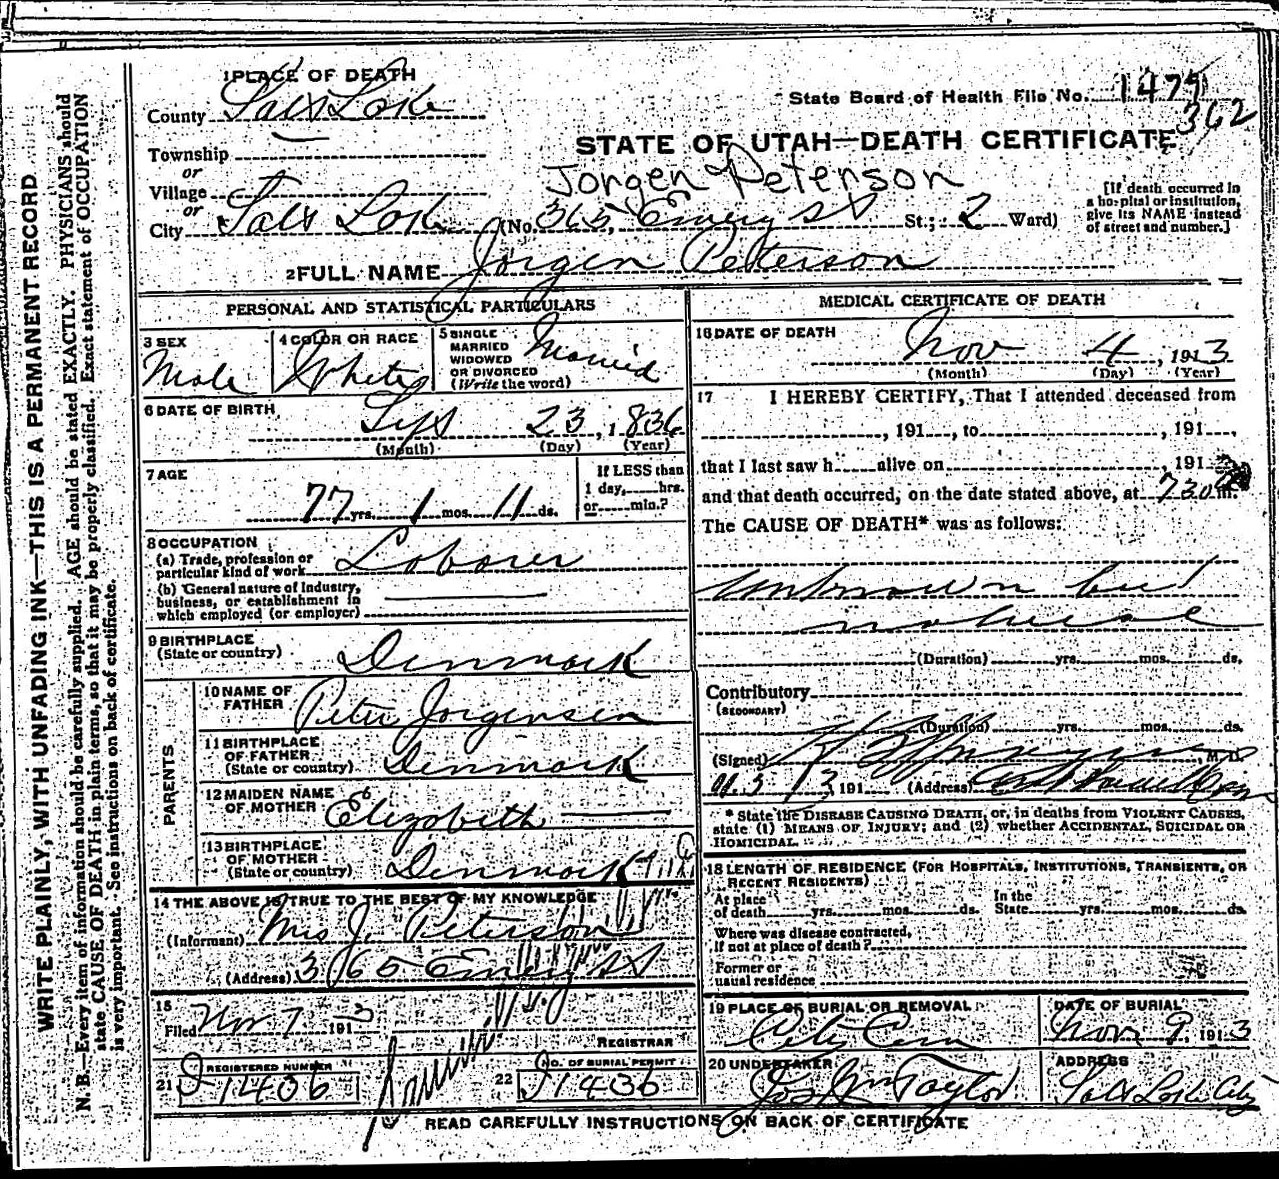 WRITE PLAINLY, WITH UNFADING INK—THIS IS A PERMANENT RECORD
N. B.—Every item of information should be carefully supplied. AGE should be stated EXACTLY. PHYSICIANS should
state CAUSE OF DEATH in plain terms, so that it may be properly classified. Exact statement of OCCUPATION
is very important. See instructions on back of certificate.
1 PLACE OF DEATH
County Salt Lake
State Board of Health File No. 1479
362
STATE OF UTAH—DEATH CERTIFICATE
Township
or
Village
or
Jorgen Peterson
[If death occurred in
a hospital or institution,
give its NAME instead
of street and number.]
City Salt Lake (No. 365, Emery St St.; 2 Ward)
2 FULL NAME Jorgen Peterson
PERSONAL AND STATISTICAL PARTICULARS
3 SEX
Male
4 COLOR OR RACE
White
5 SINGLE
MARRIED
WIDOWED
OR DIVORCED
(Write the word)
Married
6 DATE OF BIRTH
23, 1836
(Month) (Day) (Year)
7 AGE
77 yrs. 1 mos. 11 ds.
If LESS than
1 day, hrs.
or min.?
8 OCCUPATION
(a) Trade, profession or
particular kind of work Laborer
(b) General nature of industry,
business, or establishment in
which employed (or employer)
9 BIRTHPLACE
(State or country) Denmark
PARENTS
10 NAME OF
FATHER Peter Jorgensen
11 BIRTHPLACE
OF FATHER
(State or country) Denmark
12 MAIDEN NAME
OF MOTHER Elizabeth
13 BIRTHPLACE
OF MOTHER
(State or country) Denmark
14 THE ABOVE IS TRUE TO THE BEST OF MY KNOWLEDGE
(Informant) Mrs J. Peterson
(Address) 365 Emery St
15
Filed Nov 7 1913
REGISTRAR
21 REGISTERED NUMBER
1436
22 NO. OF BURIAL PERMIT
1436
MEDICAL CERTIFICATE OF DEATH
16 DATE OF DEATH
Nov 4, 1913
(Month) (Day) (Year)
17 I HEREBY CERTIFY, That I attended deceased from
, 191 , to , 191 ,
that I last saw h alive on , 191
and that death occurred, on the date stated above, at 730 m.
The CAUSE OF DEATH* was as follows:
Unknown but
natural
(Duration) yrs. mos. ds.
Contributory
(SECONDARY)
(Duration) yrs. mos. ds.
(Signed) , M. D.
191 (Address)
* State the DISEASE CAUSING DEATH, or, in deaths from VIOLENT CAUSES,
state (1) MEANS OF INJURY; and (2) whether ACCIDENTAL, SUICIDAL OR
HOMICIDAL.
18 LENGTH OF RESIDENCE (FOR HOSPITALS, INSTITUTIONS, TRANSIENTS, OR
RECENT RESIDENTS)
At place
of death yrs. mos. ds.
In the
State yrs. mos. ds.
Where was disease contracted,
If not at place of death?
Former or
usual residence
19 PLACE OF BURIAL OR REMOVAL
City Cem
DATE OF BURIAL
Nov 9, 1913
20 UNDERTAKER
Jos Wm Taylor
ADDRESS
Salt Lake City
READ CAREFULLY INSTRUCTIONS ON BACK OF CERTIFICATE